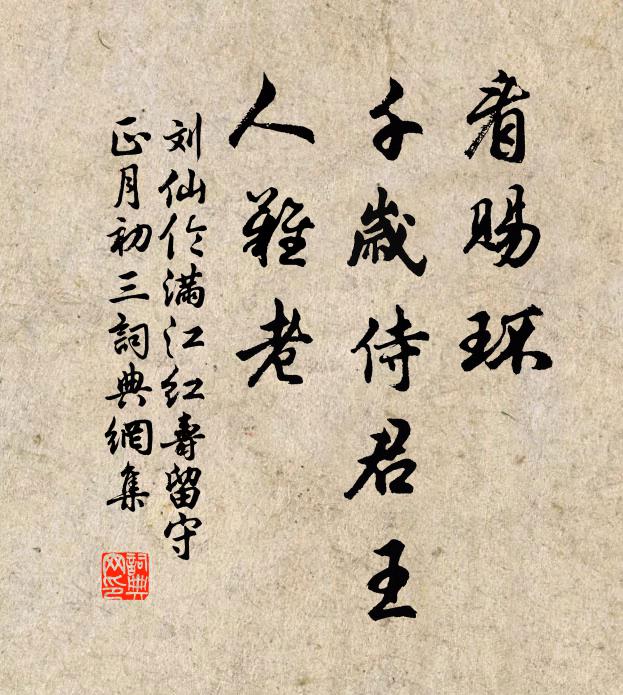 看賜环
千歲侍君王
人難老
刘仙伦满江红壽留守
正月初三詞典網集
詞典
网印